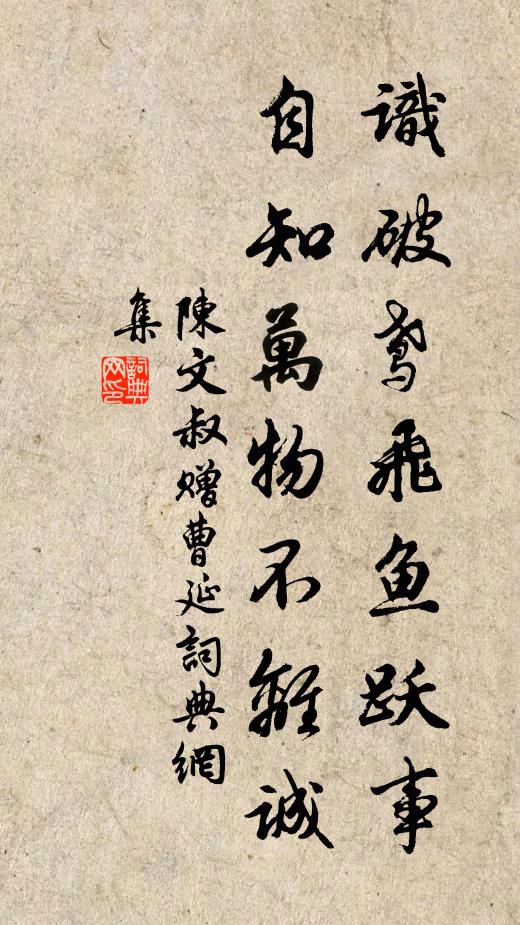 識破鸢飛鱼跃事
自知萬物不離誠
陳文叔赠曹延詞典網
集
詞典
网印